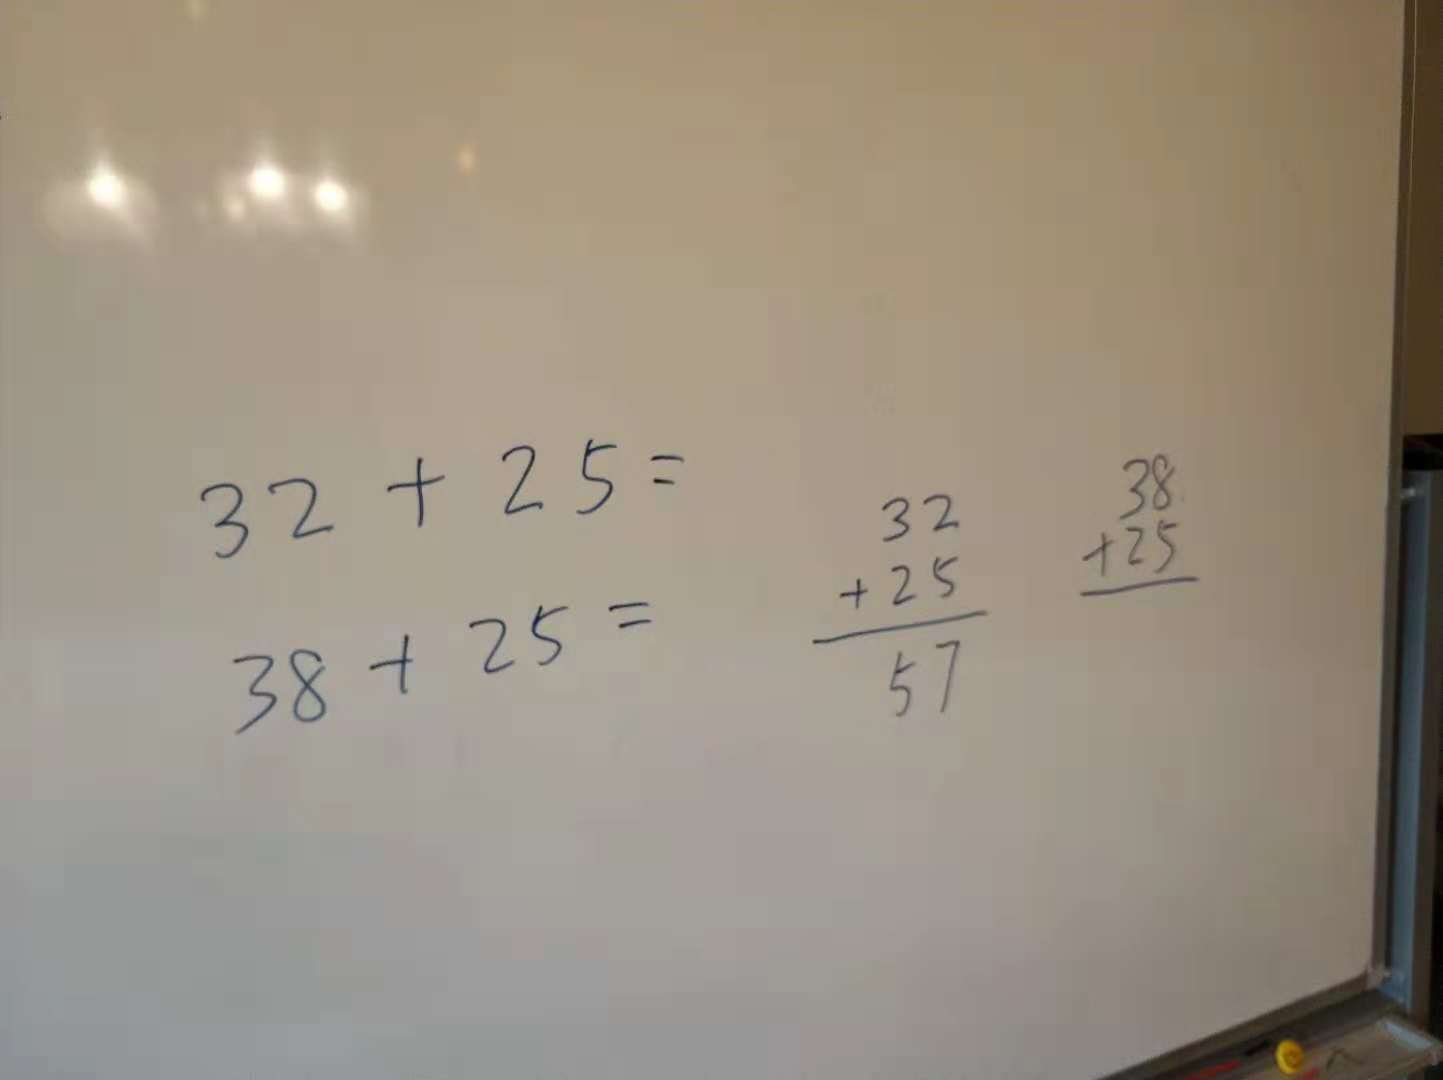 32 + 25 =
38 + 25 =
32
+ 25
57
38
+25